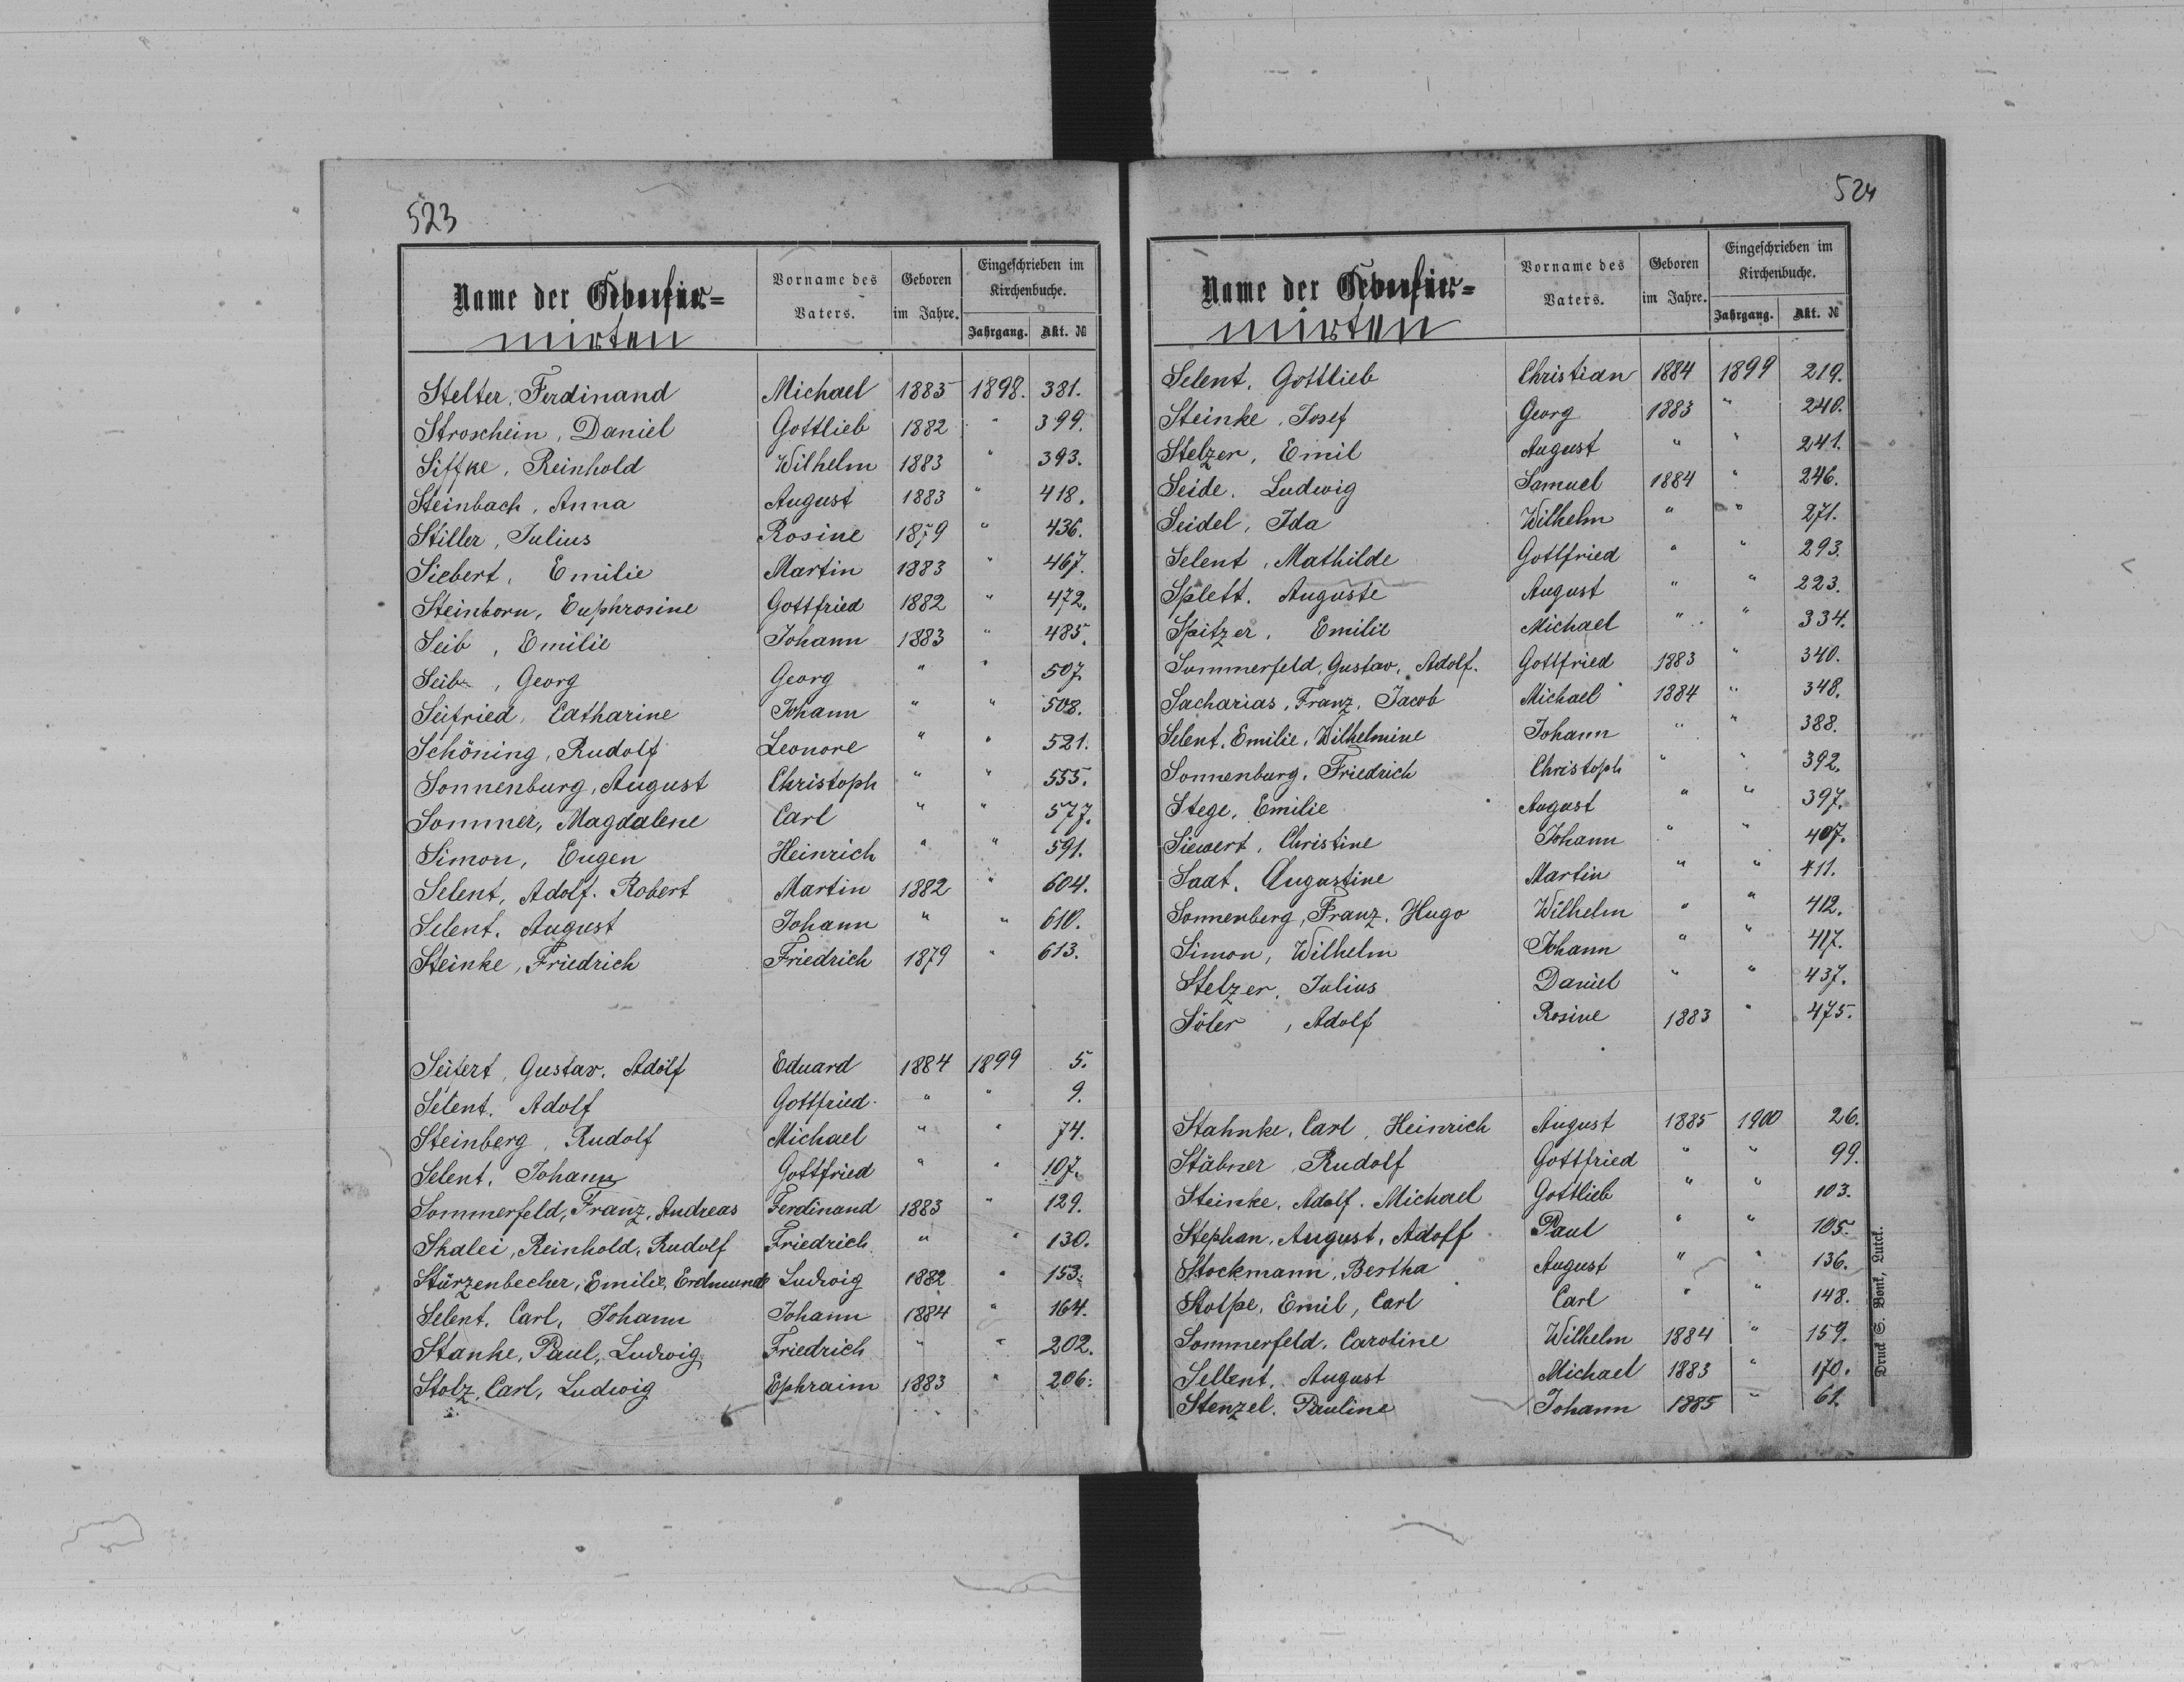 523
Name der Gebor
Vorname des Vaters.
Geboren im Jahre.
Eingeschrieben im Kirchenbuche.
Jahrgang. Akt. №
mirten
Stelter, Ferdinand Michael 1883 1898. 381.
Stroschein, Daniel Gottlieb 1882 " 399.
Siffke, Reinhold Wilhelm 1883 " 393.
Steinbach, Anna August 1883 " 418.
Stiller, Julius Rosine 1879 " 436.
Siebert, Emilie Martin 1883 " 467.
Steinborn, Euphrosine Gottfried 1882 " 472.
Seib, Emilie Johann 1883 " 485.
Seib, Georg Georg " " 507.
Seifried, Catharine Johann " " 508.
Schöning, Rudolf Leonore " " 521.
Sonnenburg, August Christoph " " 555.
Sommer, Magdalene Carl " " 577.
Simon, Eugen Heinrich " " 591.
Selent, Adolf. Robert Martin 1882 " 604.
Selent, August Johann " " 610.
Steinke, Friedrich Friedrich 1879 " 613.
Seifert, Gustav. Adolf Eduard 1884 1899 5.
Selent. Adolf Gottfried " " 9.
Steinberg, Rudolf Michael " " 74.
Selent, Johann Gottfried " " 107.
Sommerfeld, Franz, Andreas Ferdinand 1883 " 129.
Skalei, Reinhold, Rudolf Friedrich " " 130.
Stürzenbecher, Emilie, Erdmunde Ludwig 1882 " 153.
Selent, Carl, Johann Johann 1884 " 164.
Stanke, Paul, Ludwig Friedrich " " 202.
Stolz, Carl, Ludwig Ephraim 1883 " 206.
524
Name der Gebor
Vorname des Vaters.
Geboren im Jahre.
Eingeschrieben im Kirchenbuche.
Jahrgang. Akt. №
mirten
Selent, Gottlieb Christian 1884 1899 219.
Steinke, Josef Georg 1883 " 240.
Stelzer, Emil August " " 241.
Seide, Ludwig Samuel 1884 " 246.
Seidel, Ida Wilhelm " " 271.
Selent, Mathilde Gottfried " " 293.
Splett. Auguste August " " 223.
Spitzer, Emilie Michael " " 334.
Sommerfeld, Gustav, Adolf. Gottfried 1883 " 340.
Sacharias, Franz, Jacob Michael 1884 " 348.
Selent, Emilie, Wilhelmine Johann " " 388.
Sonnenburg, Friedrich Christoph " " 392.
Stege, Emilie August " " 397.
Siewert, Christine Johann " " 407.
Saat, Augustine Martin " " 411.
Sonnenberg, Franz, Hugo Wilhelm " " 412.
Simon, Wilhelm Johann " " 417.
Stelzer, Julius Daniel " " 437.
Söter, Adolf Rosine 1883 " 475.
Stahnke, Carl, Heinrich August 1885 1900 26.
Stäbner, Rudolf Gottfried " " 99.
Steinke, Adolf. Michael Gottlieb " " 103.
Stephan, August, Adolf Paul " " 105.
Stockmann, Bertha August " " 136.
Stolpe, Emil, Carl Carl " " 148.
Sommerfeld, Caroline Wilhelm 1884 " 159.
Sellent, August Michael 1883 " 170.
Stenzel, Pauline Johann 1885 " 61.
Druck S. Bonk, Lutck.